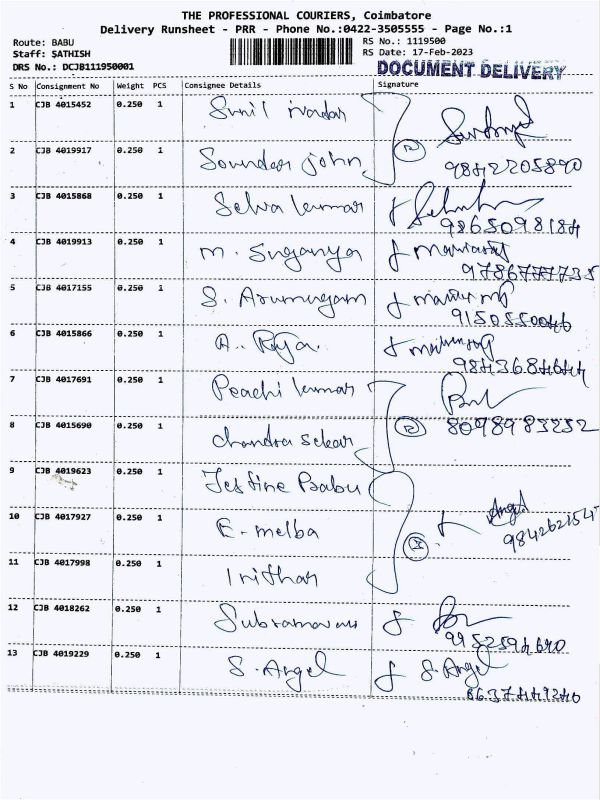 THE PROFESSIONAL COURIERS, Coimbatore
Delivery Runsheet - PRR - Phone No.:0422-3505555 - Page No.:1
Route: BABU
Staff: SATHISH
DRS No.: DCJB111950001
RS No.: 1119500
RS Date: 17-Feb-2023
DOCUMENT DELIVERY
S No Consignment No Weight PCS Consignee Details Signature
1 CJB 4015452 0.250 1 Sunil nadar
2 CJB 4019917 0.250 1 Soundar john 9842205890
3 CJB 4015868 0.250 1 Selva kumar 9865098184
4 CJB 4019913 0.250 1 M. Suganya
5 CJB 4017155 0.250 1 S. Arumugam 9150550046
6 CJB 4015866 0.250 1 A. Raja. 9843684644
7 CJB 4017691 0.250 1 Peachi kumar
8 CJB 4015690 0.250 1 chandra sekar 8098983252
9 CJB 4019623 0.250 1 Jestine Babu
10 CJB 4017927 0.250 1 E. melba Angel
11 CJB 4017998 0.250 1
12 CJB 4018262 0.250 1
13 CJB 4019229 0.250 1 S. Angel S. Angel